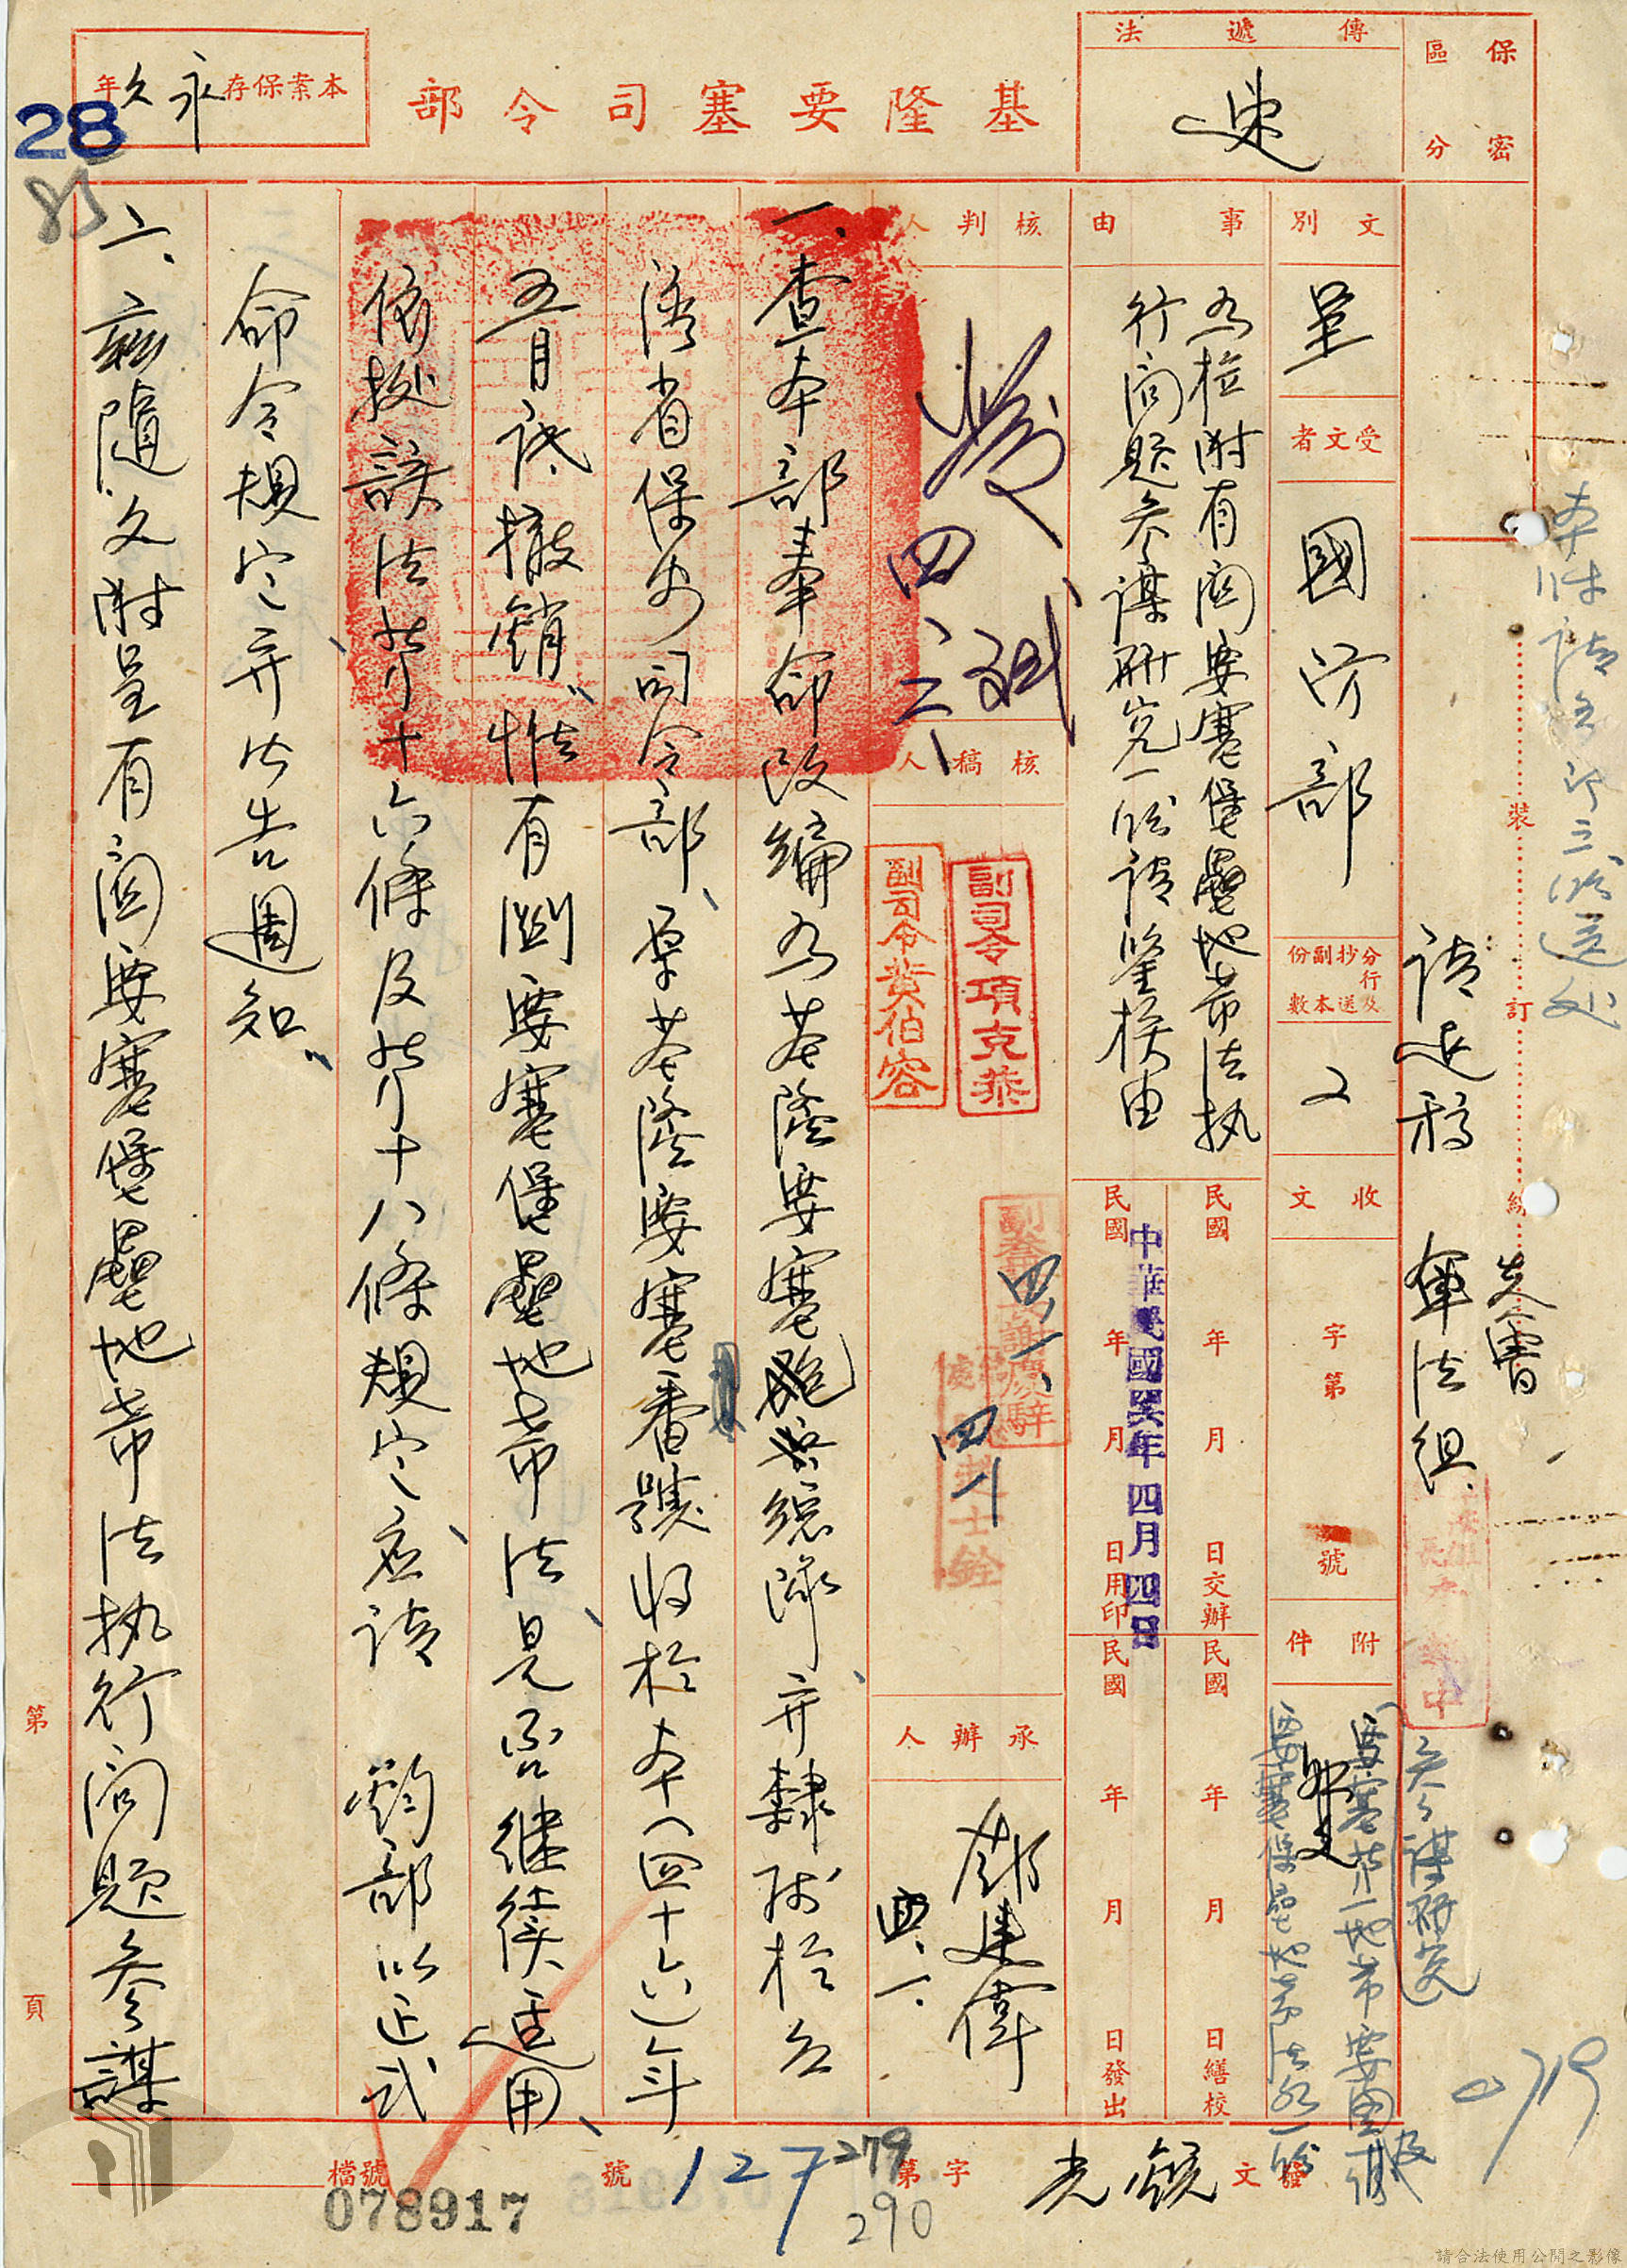 保密
區分
傳遞法
速
基隆要塞司令部
本案保存永久年
28
85
文別
呈
受文者
國防部
分行及抄送副本份數
2
收文
字第
號
附件
事由
為檢附有關要塞堡壘地帶法执
行問題參謀研究一份請鑒核由
民國
年
月
日交辦
民國
年
月
日繕校
民國
年
月
日用印
中華民國四六年四月四日
民國
年
月
日發出
核判人
核稿人
副司令項克恭
副司令黃伯容
承辦人
請退稿
軍法組
會
參謀研究
一、查本部奉命改編為基隆要塞總隊、并隸屬於台
灣省保安司令部、原基隆要塞番號將於本(四十六)年
五月底撤銷、惟有關要塞堡壘地帶法、是否繼續适用、
依据該法第十六條及第十八條規定、應請 鈞部以正式
命令規定并公告週知。
二、茲隨文附呈有關要塞堡壘地帶法执行問題參謀
裝
訂
線
發文
字第
127
號
279
290
檔號
078917
0719
第
頁
請合法使用公開之影像